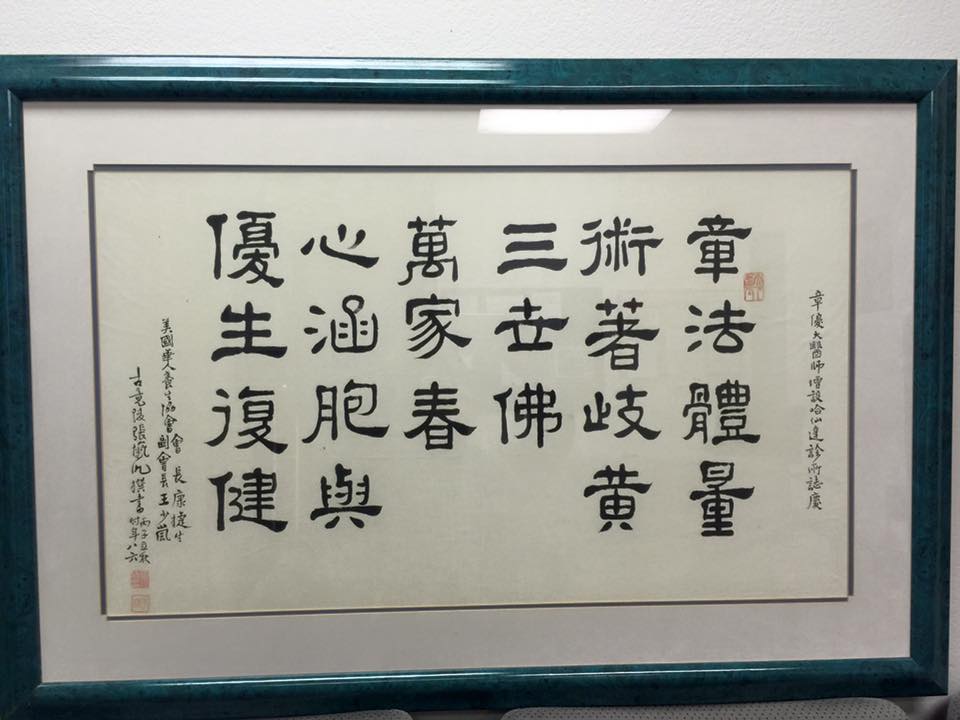 章優大醫師增設哈仙達診所誌慶
章法體量
術著歧黃
三世佛
萬家春
心涵胞與
優生復健
美國華人養生協會會長康捷生
副會長王少嵐
古竟陵張撰書
丙子孟秋
時年八六